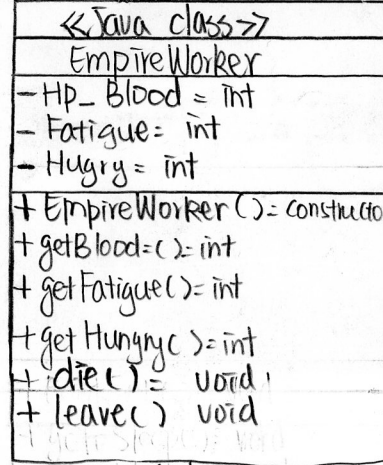 <<Java class>>
EmpireWorker
- HP_Blood = int
- Fatigue = int
- Hugry = int
+ EmpireWorker() = constructo
+ getBlood=() = int
+ getFatigue() = int
+ get Hungry() = int
+ die() = void
+ leave() void